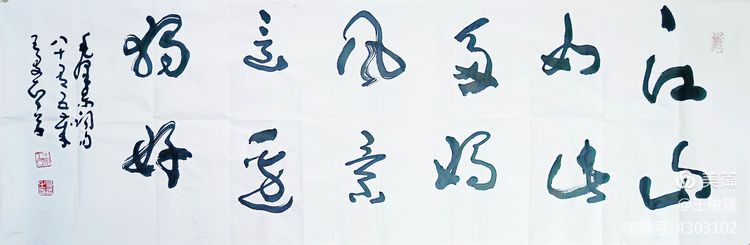 江山
如此
多娇
风景
这边
独好
毛泽东词句
八十
美篇
@王俊隆
美篇号: 4303102